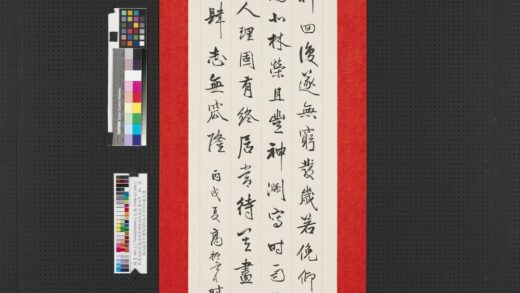 回復遂無窮發歲若俛仰
北林榮且豐神淵寫時雨
人理固有終居常待其盡
肆志無窊隆 丙戌夏